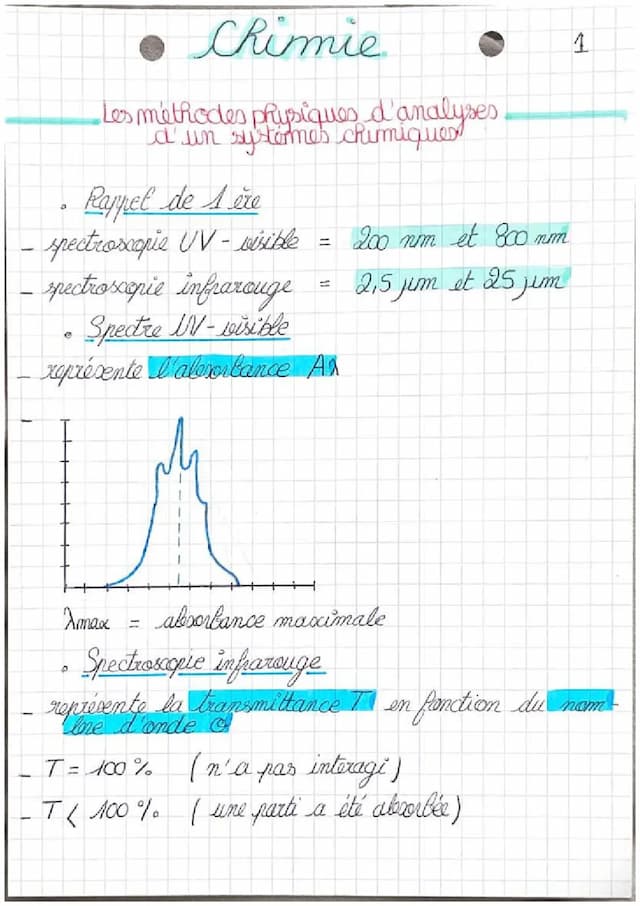 Chimie
1
Les méthodes physiques d'analyses
d'un systèmes chimiques
• Rappel de 1 ère
- spectroscopie UV - visible = 200 nm et 800 nm
- spectroscopie infrarouge = 2,5 µm et 25 µm
• Spectre UV - visible
- représente l'absorbance Aλ
-
λmax = absorbance maximale
• Spectroscopie infrarouge
- représente la transmittance T en fonction du nom-
bre d'onde σ
- T = 100 % (n'a pas interagi)
- T < 100 % (une parti a été absorbée)